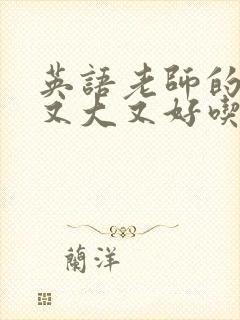 英語老師的
又大又好喫
蘭洋